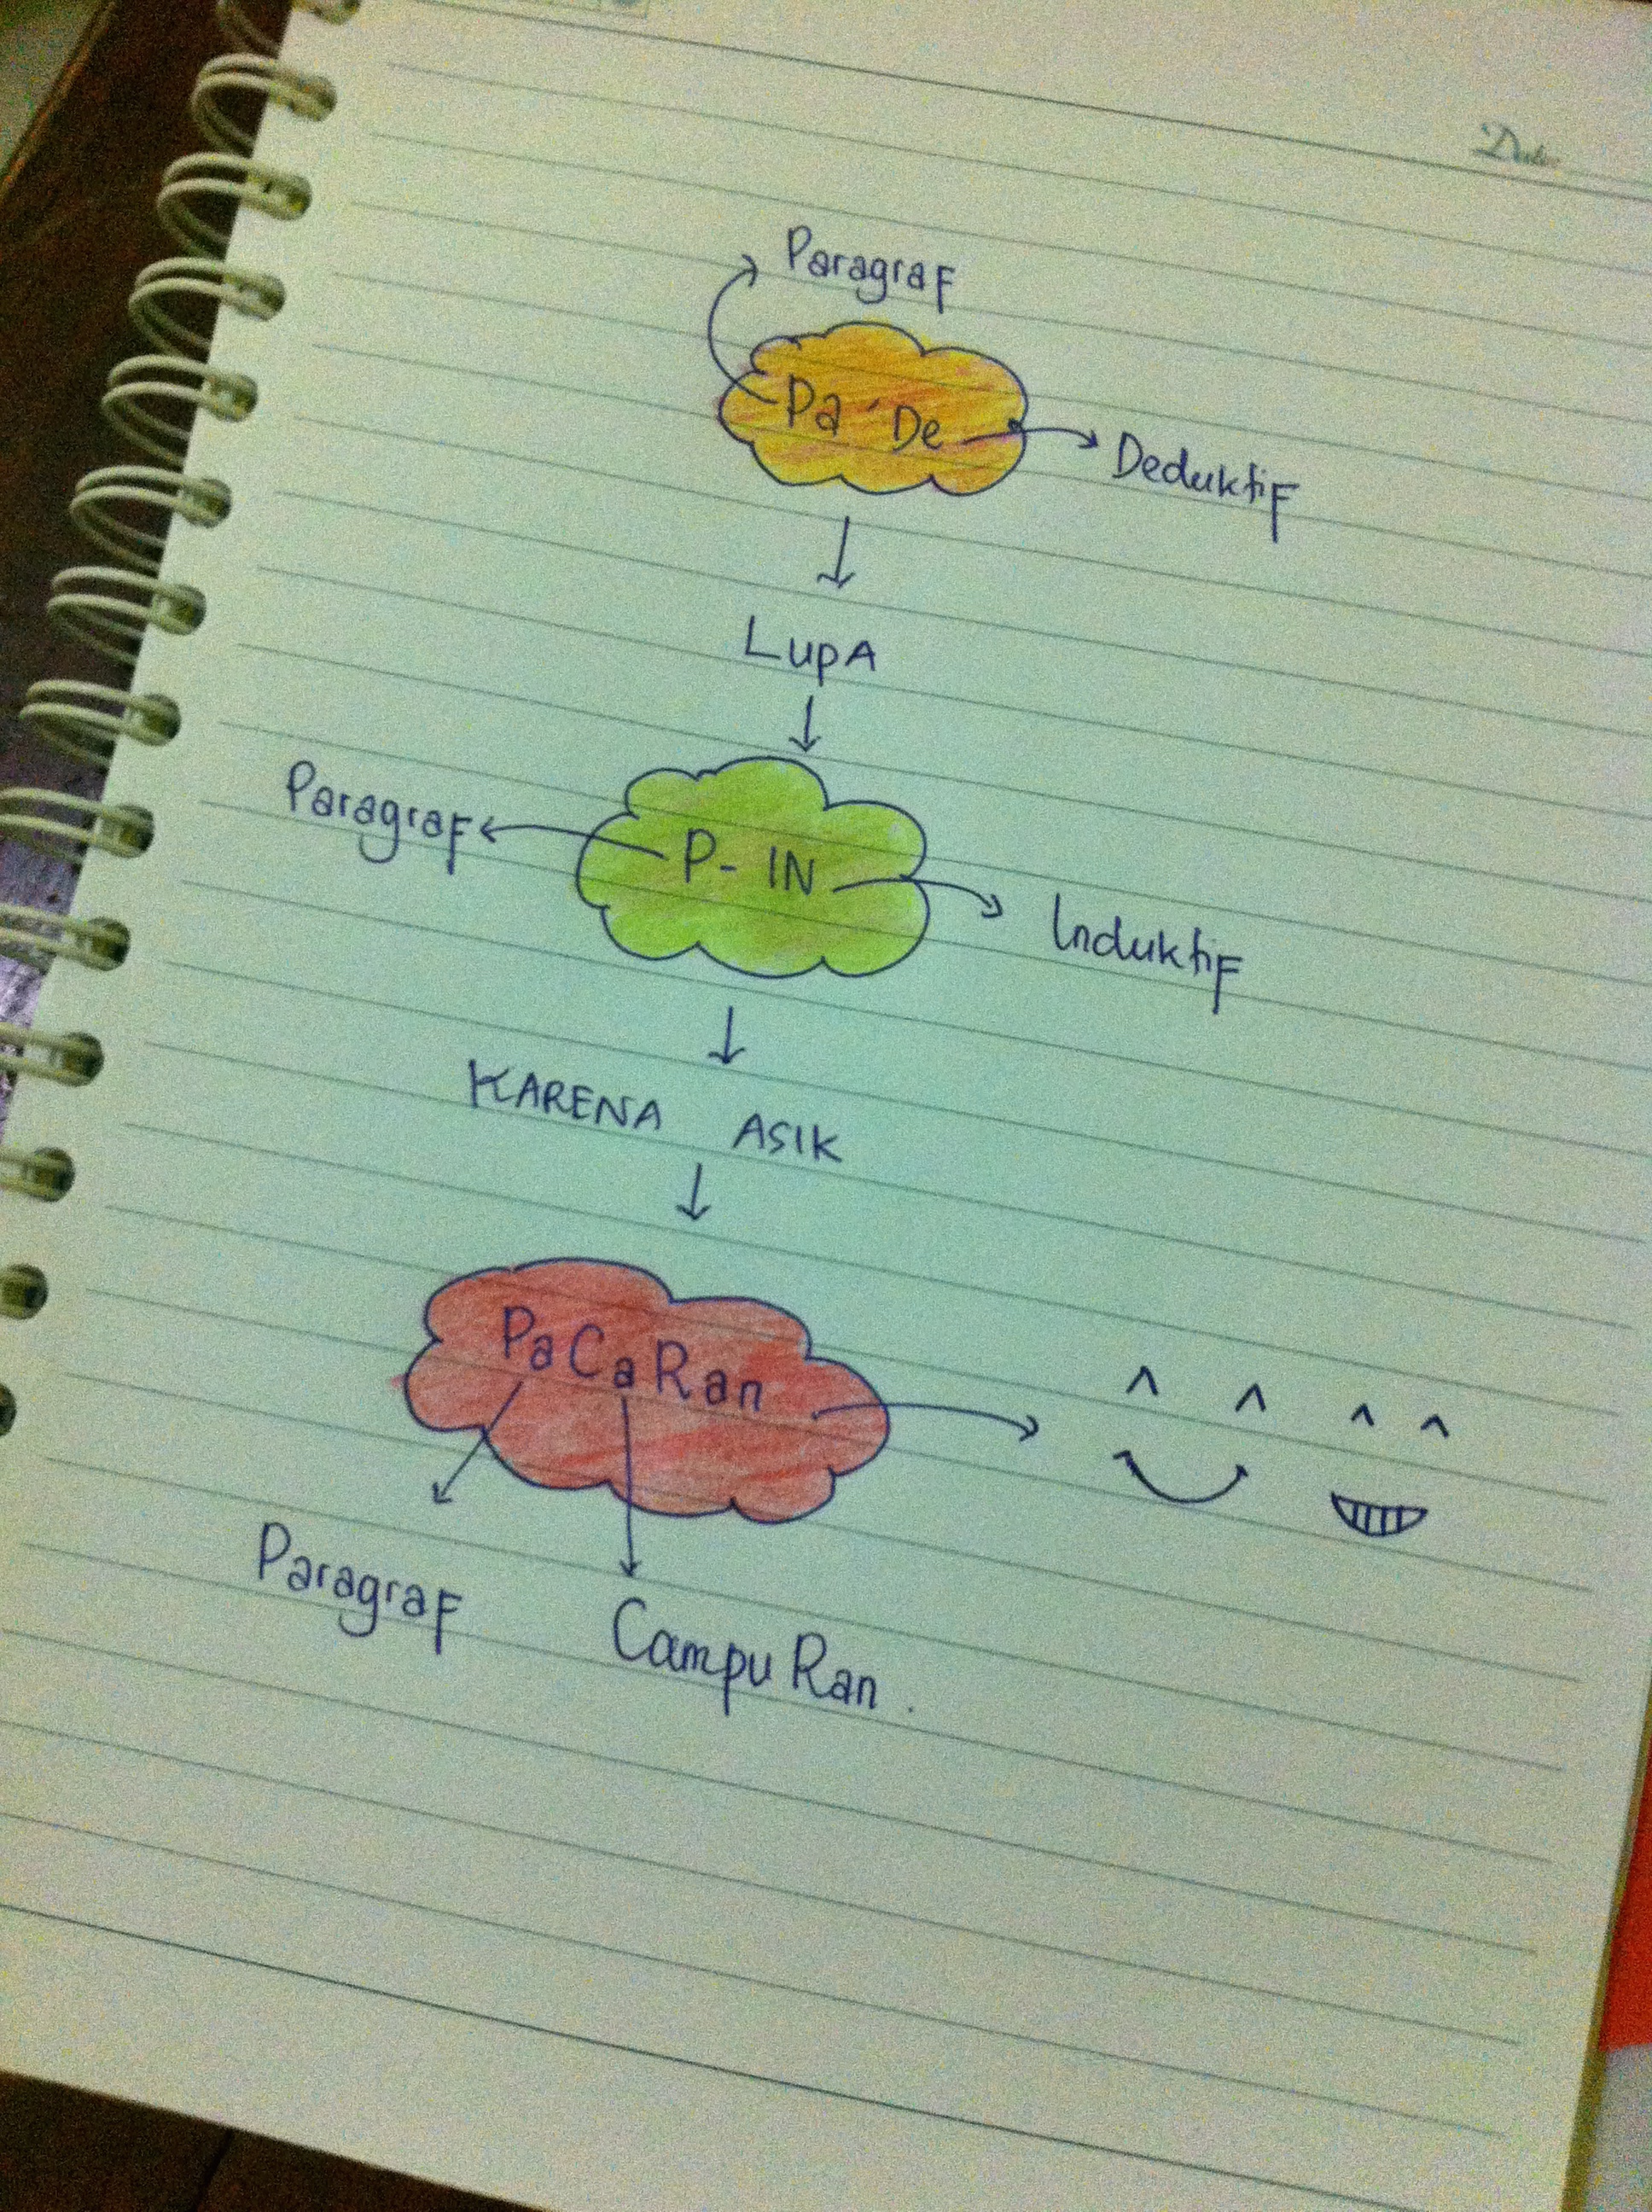 Date
Paragraf
Pa 'De
Deduktif
LupA
Paragraf
P- IN
Induktif
KARENA ASIK
PaCaRan
Paragraf
CampuRan.